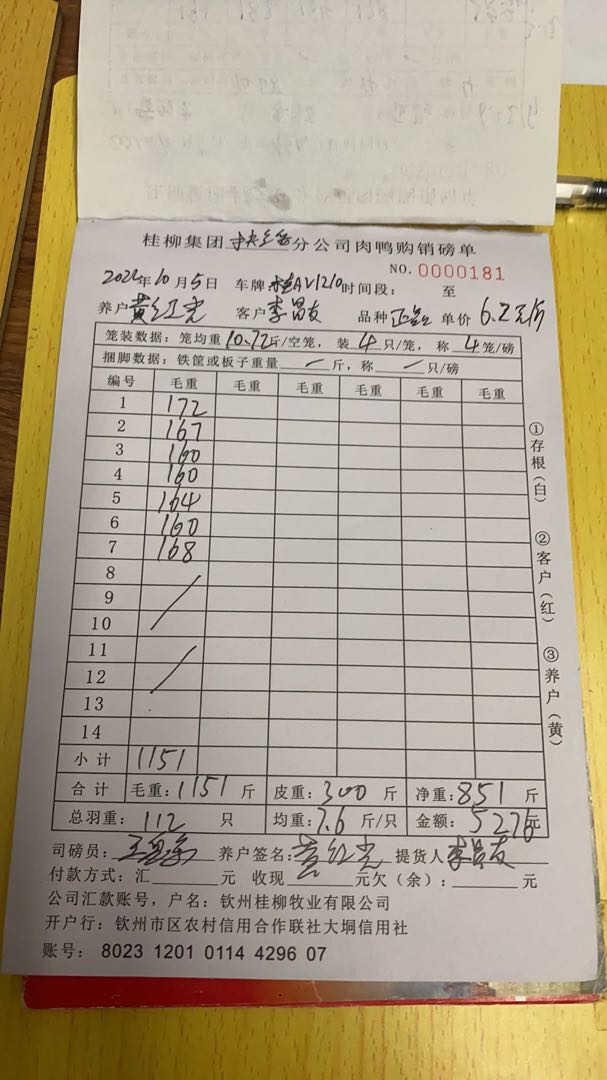 桂柳集团 分公司肉鸭购销磅单
NO. 0000181
年10月5日 车牌 桂AV1210 时间段: 至
养户 黄红光 客户 李昌友 品种 单价 6.2元/斤
笼装数据: 笼均重 10.72 斤/空笼, 装 4 只/笼, 称 4 笼/磅
捆脚数据: 铁筐或板子重量 — 斤, 称 — 只/磅
编号 毛重 毛重 毛重 毛重 毛重 毛重
1 172
2 167
3 160
4 160
5 164
6 160
7 168
8
9
10
11
12
13
14
小计 1151
合计 毛重: 1151 斤 皮重: 300 斤 净重: 851 斤
总羽重: 112 只 均重: 7.6 斤/只 金额: 5276 元
司磅员: 养户签名: 黄红光 提货人 李昌友
付款方式: 汇 元 收现 元欠(余): 元
公司汇款账号, 户名: 钦州桂柳牧业有限公司
开户行: 钦州市区农村信用合作联社大垌信用社
账号: 8023 1201 0114 4296 07
①存根(白)
②客户(红)
③养户(黄)